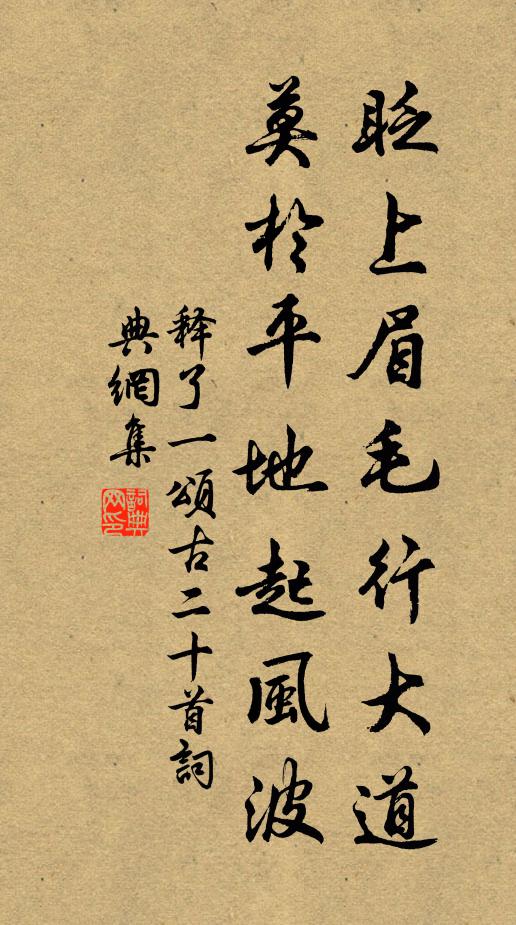 眨上眉毛行大道
莫於平地起風波
释了一頌古二十首詞
典網集
詞典网印